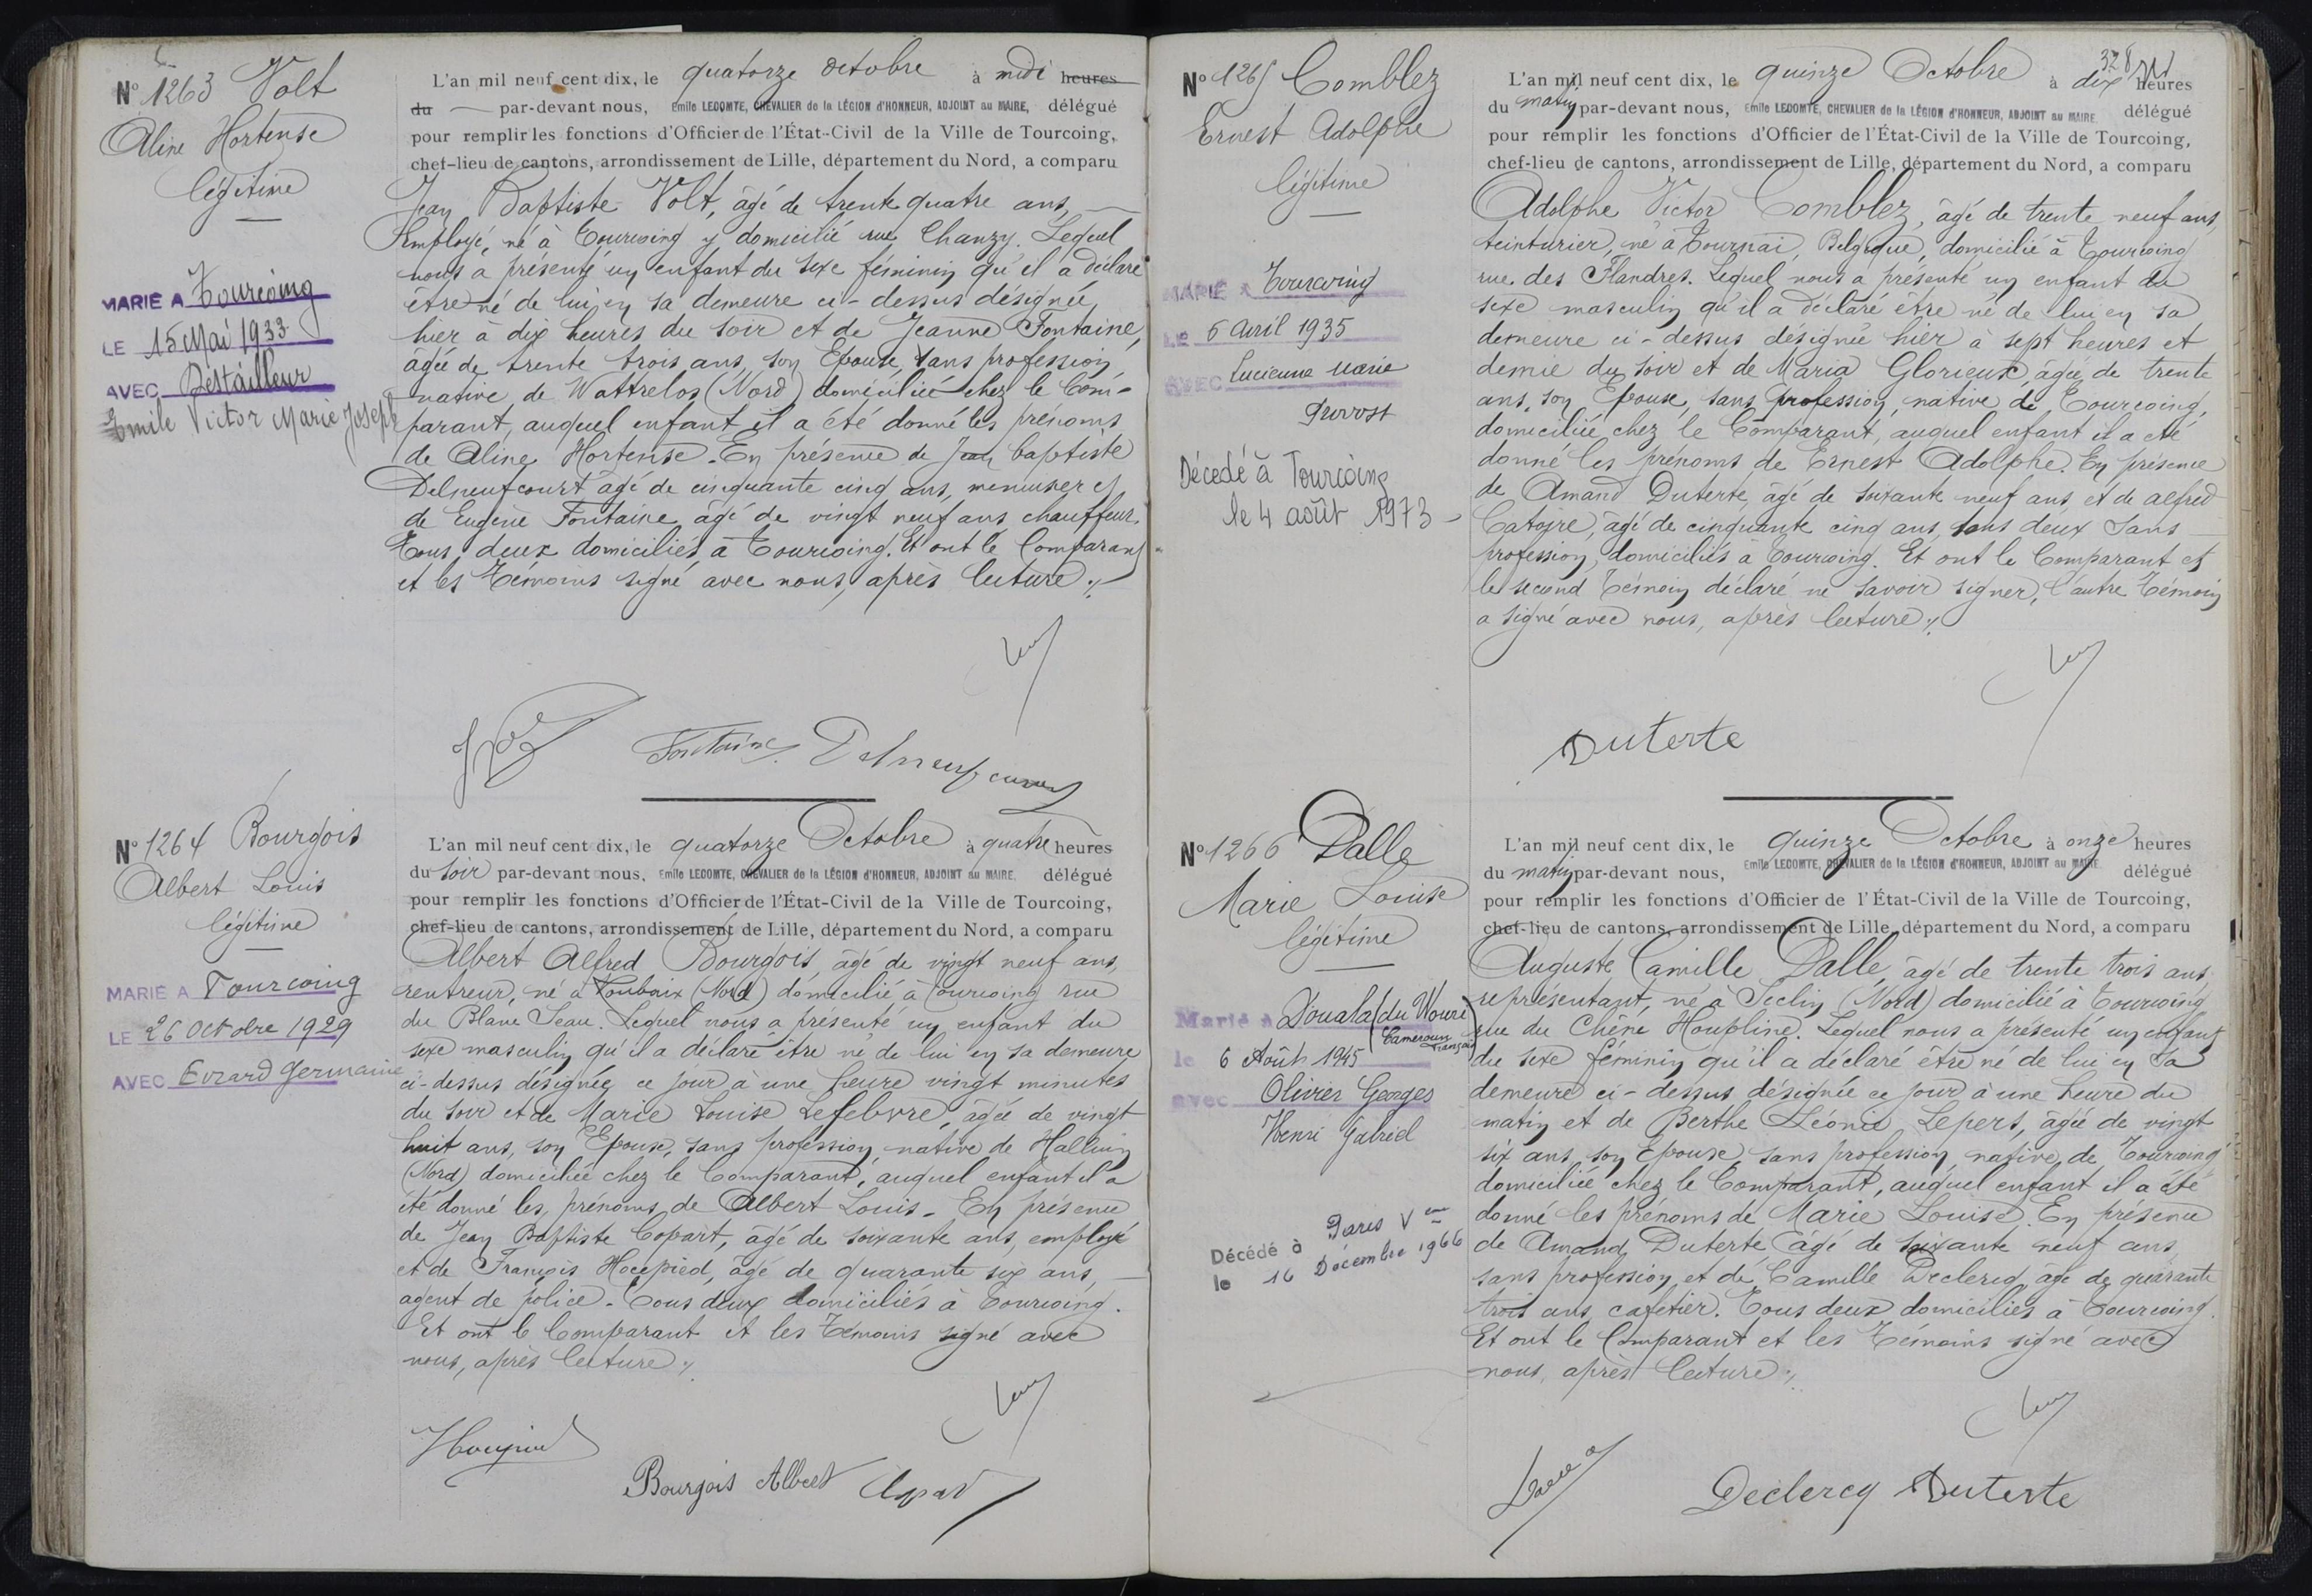 N° 1263 Volt
Aline Hortense
légitime
MARIÉ A Tourcoing
LE 15 Mai 1933
AVEC Déstailleur
Emile Victor Marie Joseph
L'an mil neuf cent dix, le quatorze octobre à midi heures
du par-devant nous, Emile LECOMTE, CHEVALIER de la LÉGION d'HONNEUR, ADJOINT au MAIRE, délégué
pour remplir les fonctions d'Officier de l'État-Civil de la Ville de Tourcoing,
chef-lieu de cantons, arrondissement de Lille, département du Nord, a comparu
Jean Baptiste Volt, âgé de trente quatre ans,
Employé, né à Tourcoing y domicilié rue Chanzy. Lequel
nous a présenté un enfant du sexe féminin qu'il a déclaré
être né de lui en sa demeure ci-dessus désignée
hier à dix heures du soir et de Jeanne Fontaine,
âgée de trente trois ans, son Epouse, sans profession,
native de Wattrelos (Nord) domiciliée chez le Com-
parant, auquel enfant il a été donné les prénoms
de Aline Hortense. En présence de Jean baptiste
Delneufcourt âgé de cinquante cinq ans, menuisier et
de Eugène Fontaine âgé de vingt neuf ans chauffeur.
Tous deux domiciliés à Tourcoing. Et ont le Comparant
et les Témoins signé avec nous, après lecture ./.
Fontaine Delneufcourt
N° 1264 Bourgois
Albert Louis
légitime
MARIÉ A Tourcoing
LE 26 Octobre 1929
AVEC Evrard Germaine
L'an mil neuf cent dix, le quatorze Octobre à quatre heures
du soir par-devant nous, Emile LECOMTE, CHEVALIER de la LÉGION d'HONNEUR, ADJOINT au MAIRE, délégué
pour remplir les fonctions d'Officier de l'État-Civil de la Ville de Tourcoing,
chef-lieu de cantons, arrondissement de Lille, département du Nord, a comparu
Albert Alfred Bourgois, âgé de vingt neuf ans,
rentreur, né à Roubaix (Nord) domicilié à Tourcoing rue
du Blanc Seau. Lequel nous a présenté un enfant du
sexe masculin qu'il a déclaré être né de lui en sa demeure
ci-dessus désignée ce jour à une heure vingt minutes
du soir et de Marie Louise Lefebvre, âgée de vingt
huit ans, son Epouse, sans profession, native de Halluin
(Nord) domiciliée chez le Comparant, auquel enfant il a
été donné les prénoms de Albert Louis. En présence
de Jean Baptiste Copart, âgé de soixante ans, employé
et de François Hocepied, âgé de quarante six ans,
agent de police. Tous deux domiciliés à Tourcoing.
Et ont le Comparant et les Témoins signé avec
nous, après lecture ./.
Hocepied
Bourgois Albert Copart
328
N° 1265 Comblez
Ernest Adolphe
légitime
MARIÉ A Tourcoing
LE 6 avril 1935
AVEC Lucienne Marie
Provost
Décédé à Tourcoing
le 4 août 1973
L'an mil neuf cent dix, le quinze Octobre à dix heures
du matin par-devant nous, Emile LECOMTE, CHEVALIER de la LÉGION d'HONNEUR, ADJOINT au MAIRE, délégué
pour remplir les fonctions d'Officier de l'État-Civil de la Ville de Tourcoing,
chef-lieu de cantons, arrondissement de Lille, département du Nord, a comparu
Adolphe Victor Comblez, âgé de trente neuf ans,
teinturier, né à Tournai, Belgique, domicilié à Tourcoing
rue des Flandres. Lequel nous a présenté un enfant du
sexe masculin qu'il a déclaré être né de lui en sa
demeure ci-dessus désignée hier à sept heures et
demie du soir et de Maria Glorieux, âgée de trente
ans, son Epouse, sans profession, native de Tourcoing,
domiciliée chez le Comparant, auquel enfant il a été
donné les prénoms de Ernest Adolphe. En présence
de Amand Duterte, âgé de soixante neuf ans et de alfred
Catoire, âgé de cinquante cinq ans, tous deux sans
profession, domiciliés à Tourcoing. Et ont le Comparant et
le second Témoin déclaré ne savoir signer, l'autre Témoin
a signé avec nous, après lecture ./.
Duterte
N° 1266 Dalle
Marie Louise
légitime
Marié à Douala (du Wouri)
Cameroun Français
le 6 Août 1945
avec Olivier Georges
Henri Gabriel
Décédé à Paris Vème
le 16 Décembre 1966
L'an mil neuf cent dix, le quinze Octobre à onze heures
du matin par-devant nous, Emile LECOMTE, CHEVALIER de la LÉGION d'HONNEUR, ADJOINT au MAIRE, délégué
pour remplir les fonctions d'Officier de l'État-Civil de la Ville de Tourcoing,
chef-lieu de cantons, arrondissement de Lille, département du Nord, a comparu
Auguste Camille Dalle, âgé de trente trois ans,
représentant, né à Seclin (Nord) domicilié à Tourcoing
rue du Chêne Houpline. Lequel nous a présenté un enfant
du sexe féminin qu'il a déclaré être né de lui en sa
demeure ci-dessus désignée ce jour à une heure du
matin et de Berthe Léonie Lepers, âgée de vingt
six ans son Epouse, sans profession, native de Tourcoing
domiciliée chez le Comparant, auquel enfant il a été
donné les prénoms de Marie Louise. En présence
de Amand Duterte âgé de soixante neuf ans,
sans profession, et de Camille Declercq, âgé de quarante
trois ans, cafetier. Tous deux domiciliés à Tourcoing.
Et ont le Comparant et les Témoins signé avec
nous, après lecture ./.
Declercq Duterte